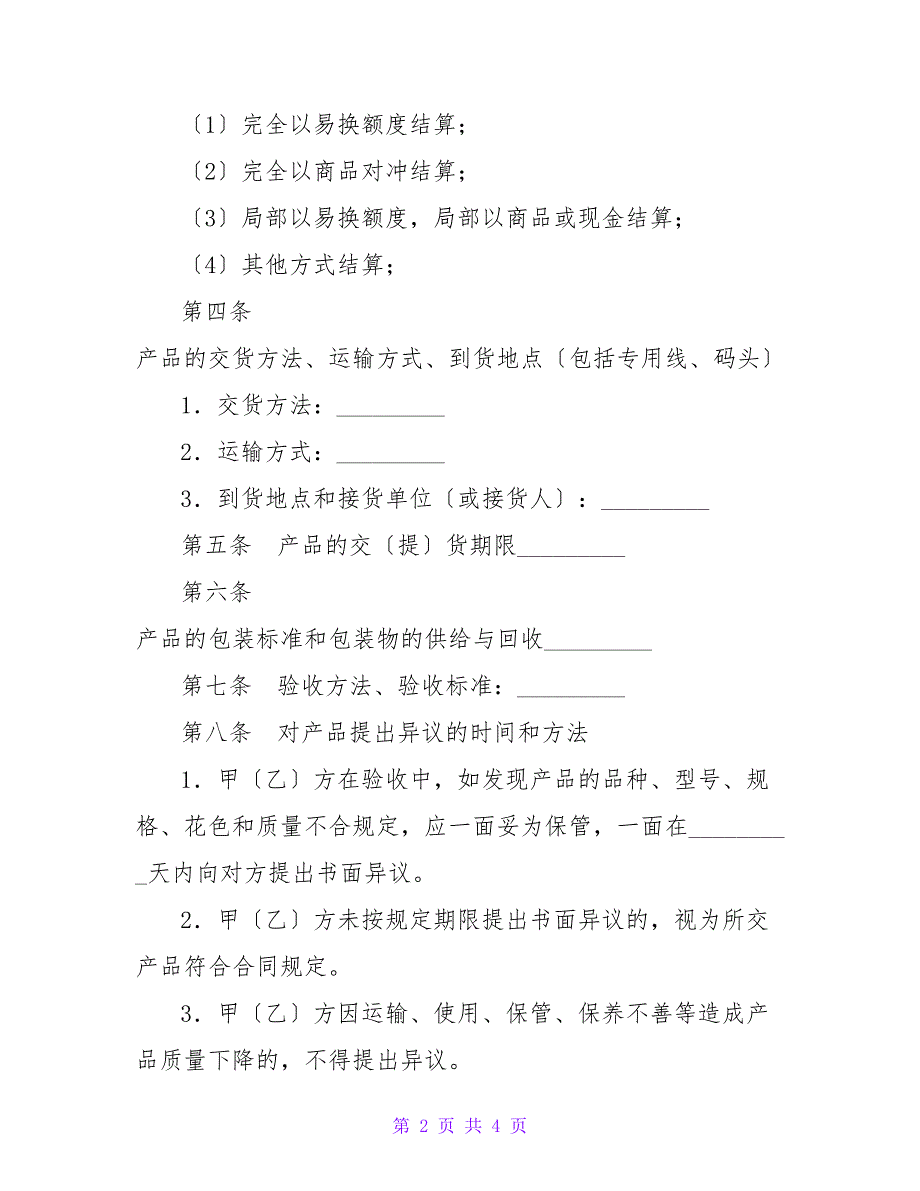 〔1〕完全以易换额度结算；
〔2〕完全以商品对冲结算；
〔3〕局部以易换额度，局部以商品或现金结算；
〔4〕其他方式结算；
第四条
产品的交货方法、运输方式、到货地点〔包括专用线、码头〕
1．交货方法：_________
2．运输方式：_________
3．到货地点和接货单位〔或接货人〕：_________
第五条　产品的交〔提〕货期限_________
第六条
产品的包装标准和包装物的供给与回收_________
第七条　验收方法、验收标准：_________
第八条　对产品提出异议的时间和方法
1．甲〔乙〕方在验收中，如发现产品的品种、型号、规
格、花色和质量不合规定，应一面妥为保管，一面在________
_天内向对方提出书面异议。
2．甲〔乙〕方未按规定期限提出书面异议的，视为所交
产品符合合同规定。
3．甲〔乙〕方因运输、使用、保管、保养不善等造成产
品质量下降的，不得提出异议。
第 2 页 共 4 页